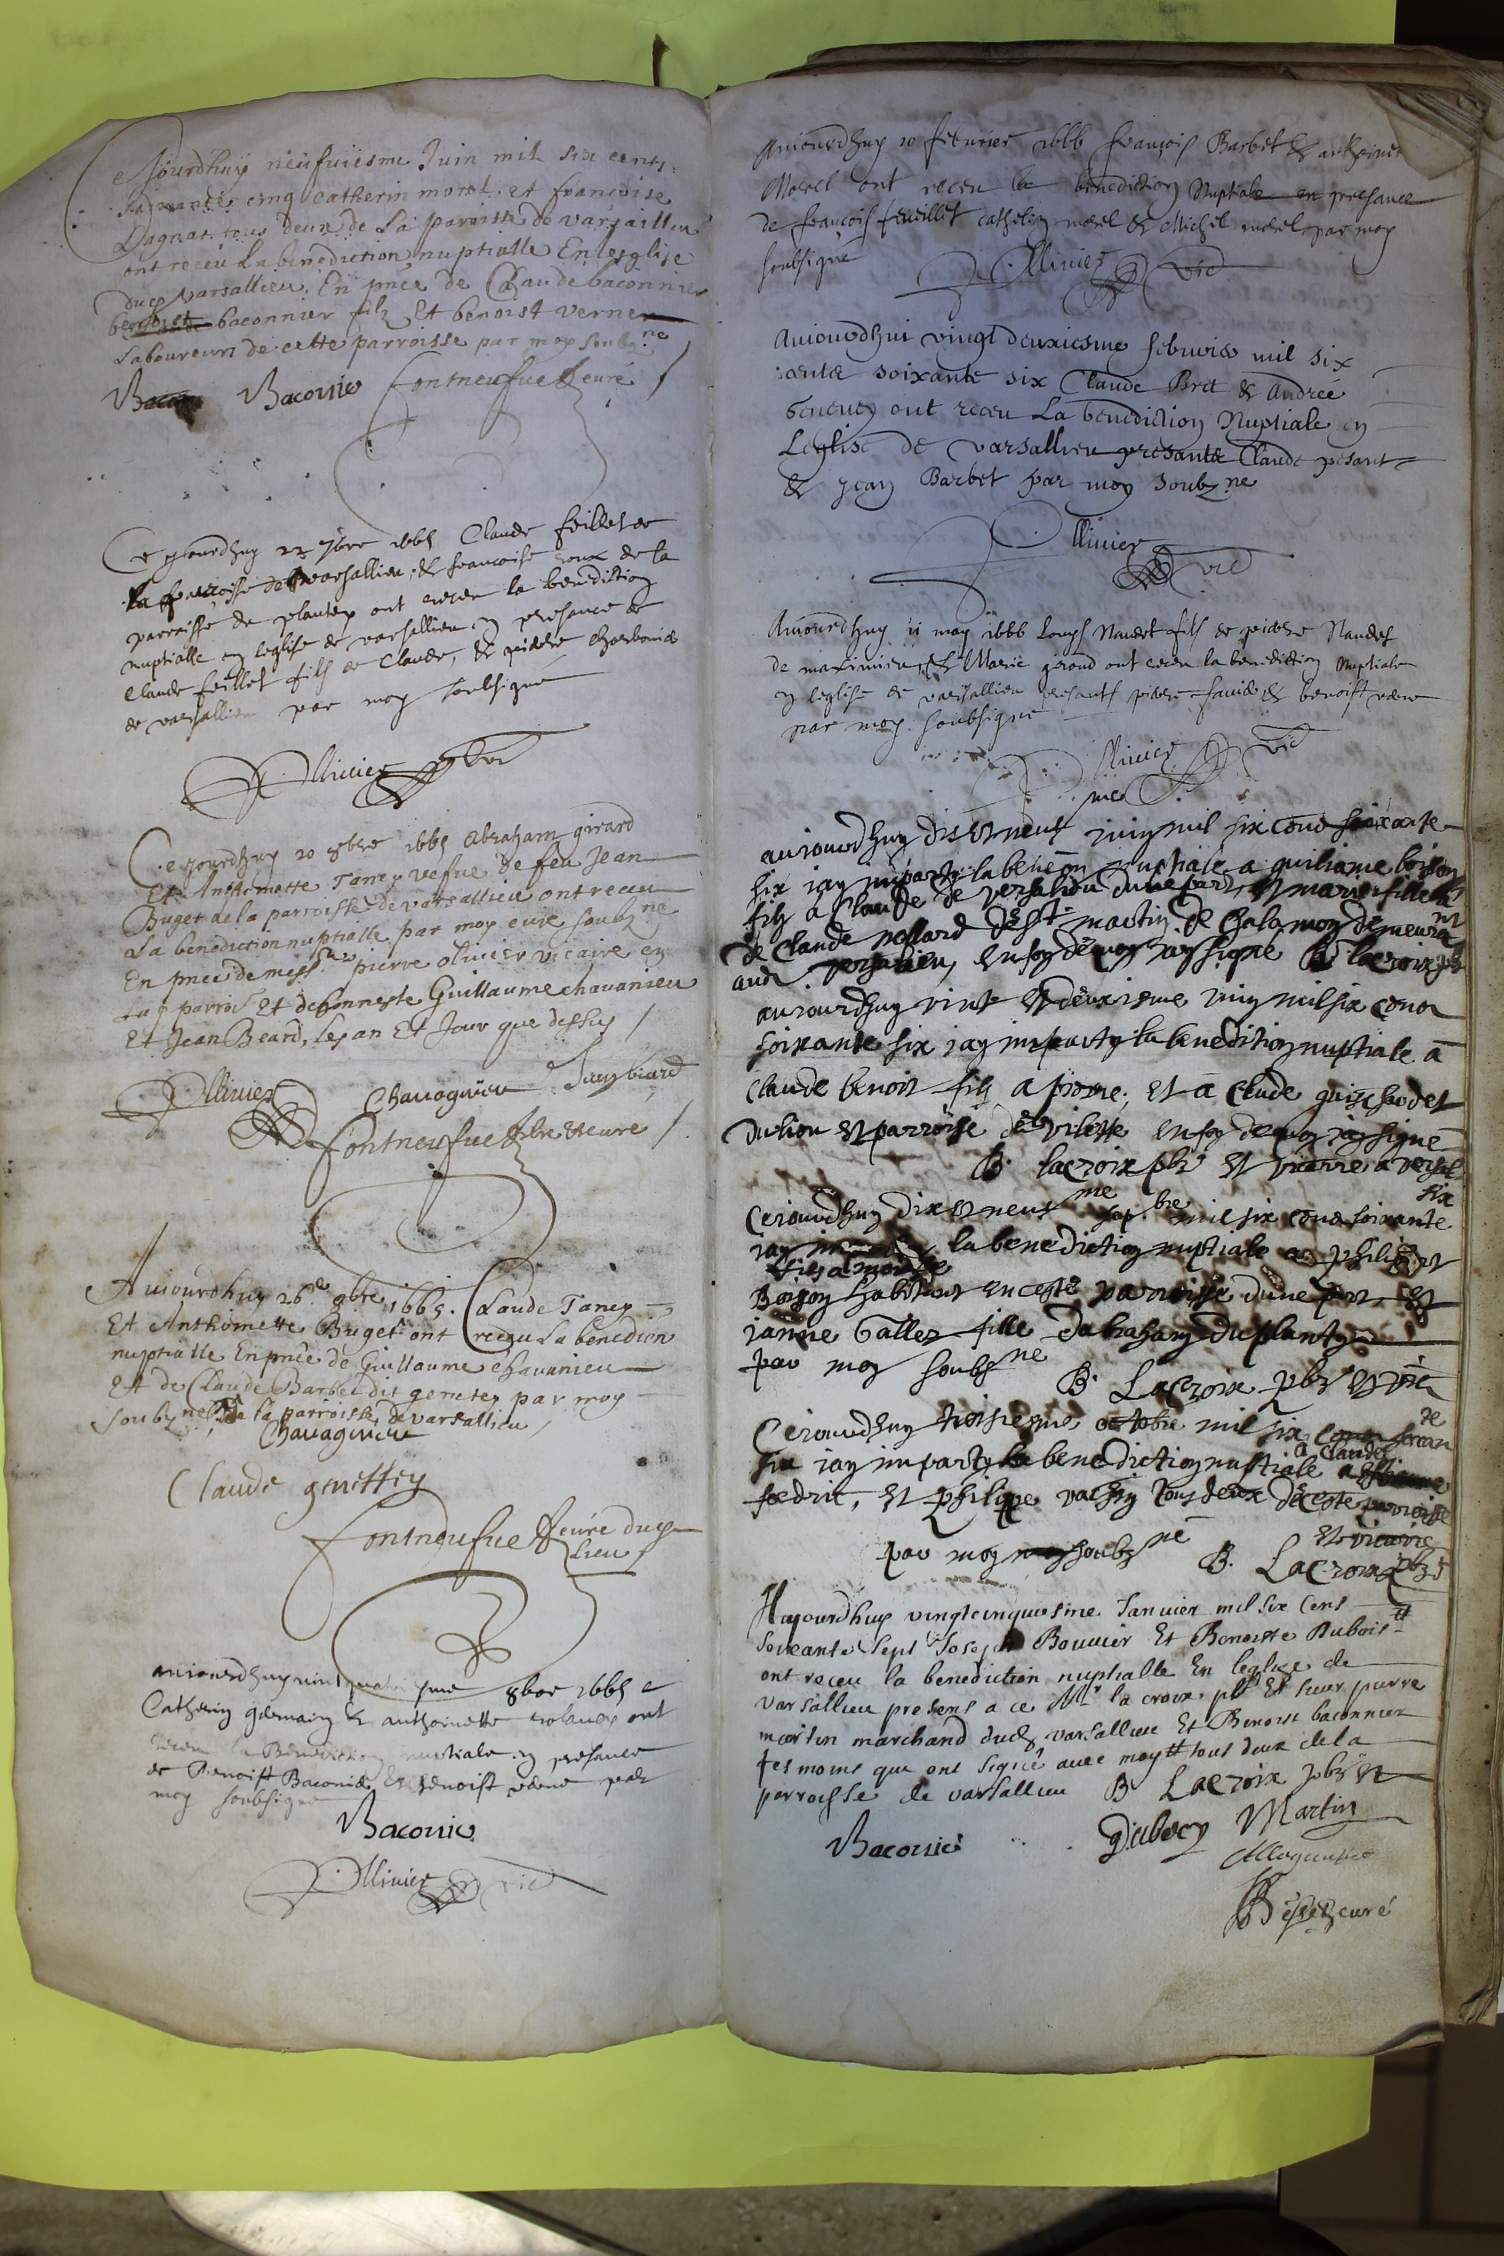 Cejourdhuy neufuiesme Juin mil six cents
soixante cinq Catherin morel et francoise
Dagnat tous deux de La paroisse de varsaillieu
ont receu La benediction nuptialle En lesglise
dud varsallieu En pnce de Claude baconnier
benoist baconnier filz Et benoist verne
Laboureurs de cette parroisse par moy soubz.ne
Baconie Fontneufue Curé
Ce jourdhuy 22 7bre 1665 Claude feillet de
la parroisse de varsallieu & francoise roux de la
parroisse de plantey ont receu la benediction
nuptialle en leglise de varsallieu en presance de
Claude feillet fils de Claude, & pierre charbonie
de varsallieu par moy soubsigné
P. Ollivier vic
Ce jourdhuy 20 8bre 1665 Abraham girard
Et Anthoinette Taney vefue de feu Jean
Buget de la parroisse de varsallieu ont receu
La benediction nuptialle par moy curé soubz ne
En pnce de mess.re pierre olivier vicaire en
lad parrois. Et de honneste Guillaume chavanieu
Et Jean Beard, les an Et Jour que dessus
P. Ollivier Chavagnieu Jean biard
Fontneufue pbre & curé
Aujourdhuy 26e 9bre 1665. Claude Taney
Et Anthoinette Buget ont receu La benedion
nuptialle En pnce de Guillaume chavanieu
Et de Claude Barbet dit genetey par moy
soubz ne de la parroisse de varsallieu
Chavagnieu
Claude genettey
Fontneufue curé dud
Lieu
aujourdhuy vint quatriesme 8bre 1665
Catherin germain & anthoinette rolauex ont
receu la Benediction nuptiale en presance
de Benoist Baconie & benoist verne par
moy soubsigné
Baconie
P. Ollivier vic
Aujourdhuy 10 feburier 1666 françois Barbet &
Morel ont receu la benediction Nuptiale en presance
de francois feuillet Catherin morel & Michel morel par moy
soubsigné
P. Ollivier vic
Aujourdhui vingt deuxiesme februier mil six
cents soixante six Claude Bret & Andrée
Geneuey ont receu La benediction Nuptiale en
Leglise de varsallieu presants Claude pesant
& jean Barbet par moy soubz ne
P. Ollivier vic
Aujourdhuy 11 may 1666 Louys Naudet fils de pierre Naudet
de maximieu & Marie girond ont receu la benediction Nuptiale
en leglise de varsallieu presants pierre & benoist verne
par moy soubsigné
P. Ollivier vic
aujourdhuy dis et neuf me juin mil six cens soixante
six iay imparty la bene.on nuptiale a guiliame boison
filz a Claude de versalieu dune part et marie fille
de Claude de st. martin de Chalamon demeurant
aud versalieu, en foy de quoy iay signe B. lacroix pb
aujourdhuy vint et deuxiesme juin mil six cens
soixante six iay imparty la benedition nuptiale a
Claude benoit filz a piorre, et a Claude
du lieu et parroise de vilette en foy de quoy iay signe
B. lacroix pbr et vicaire a versal
Ceiourdhuy dix et neuf me sep.bre mil six cens soixante six
iay la benediction nuptiale a philibert
Boison habitant en ceste parroisse dune part et
janne Gallet fille dabraham du planty
par moy soubz ne B. Lacroix pbr et vic
Ceiourdhuy troisiesme octobre mil six
six iay imparty la benediction nuptiale a Claude
foedric, et philippe vachin tous deux de ceste parroisse
par moy soubz ne B. Lacroix pbr
et vicaire
Aujourdhuy vingtcinquiesme Janvier mil six cens
soixante sept Joseph Bouvier Et Benoiste Dubois
ont receu la benediction nuptialle En leglise de
varsallieu presens a ce Mr la croix pbr Et sieur pierre
martin marchand dud varsallieu Et Benoist baconnier
tesmoins que ont signé avec moy tous deux de la
parroisse de varsallieu B Lacroix pbr
Baconie Martin
curé